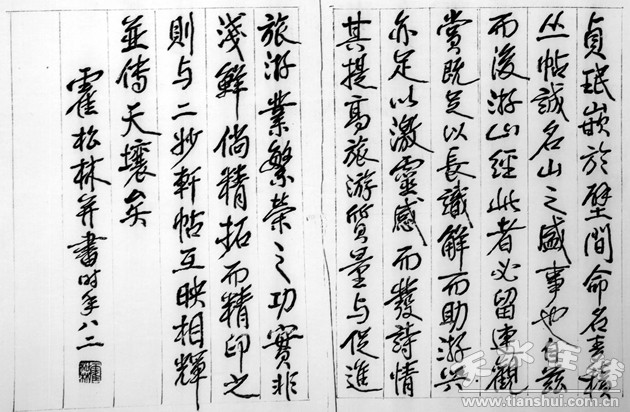 貞珉嵌於壁間命名麦積
丛帖誠名山之盛事也自茲
而後游山經此者必留連觀
賞既足以長識解而助游興
亦足以激靈感而發詩情
其提高旅游質量与促進
旅游業繁榮之功實非
淺鮮倘精拓而精印之
則与二妙軒帖互映相輝
並傳天壤矣
霍松林并書时年八二
天水在线
www.tianshui.com.cn